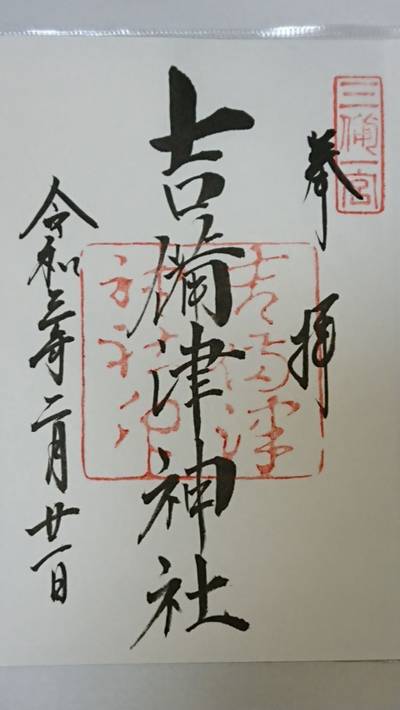 三備一宮
奉拝
吉備津神社
吉備津
令和三年二月廿一日